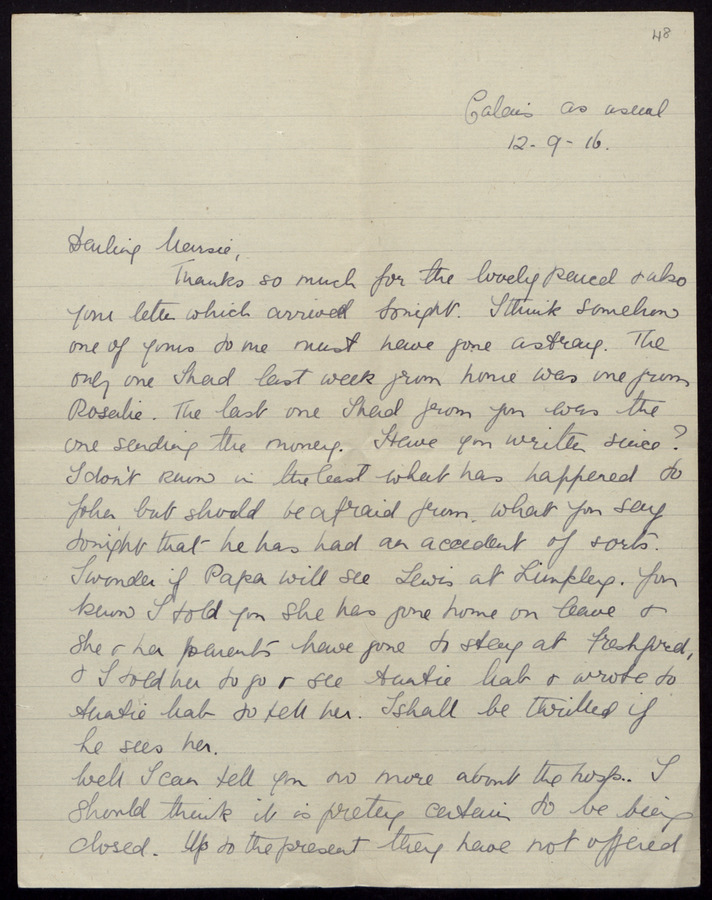 48
Calais as usual
12-9-16.
Darling
Thanks so much for the lovely pencil & also
your letter which arrived tonight. I think somehow
one of yours to me must have gone astray. The
only one I had last week from home was one from
Rosalie. The last one I had from you was the
one sending the money. Have you written since?
I don't know in the least what has happened to
John but should be afraid from what you say
tonight that he has had an accident of sorts.
I wonder if Papa will see Lewis at Limpley. You
know I told you she has gone home on leave &
she & her parents have gone to stay at Freshford,
& I told her to go & see Auntie Mab & wrote to
Auntie Mab to tell her. I shall be thrilled if
he sees her.
Well I can tell you no more about the hosp.. I
should think it is pretty certain to be being
closed. Up to the present they have not offered